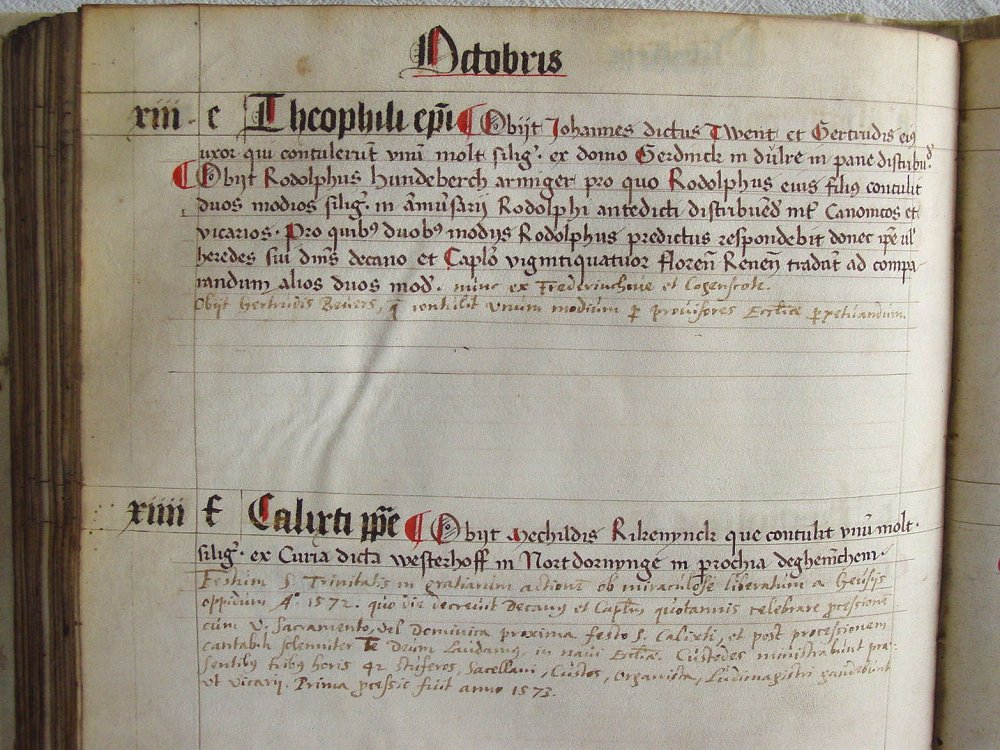 Octobris
xiii e Theophili ep̄i Obijt Johannes dictus Twent et Gertrudis ei⁹
uxor qui contulerūt vnū molt silig̕. ex domo Gerdinck in dulre in pane distribu
Obijt Rodolphus Hundeberch armiger pro quo Rodolphus eius filius contulit
duos modios silig̕. in Rodolphi antedicti distribuēd Canonicos et
vicarios. Pro quib⁹ duob⁹ modijs Rodolphus predictus respondebit donec ip̄e ul̕
heredes sui dn̄is decano et Caplo vigintiquatuor floren̄ Renen̄ tradāt ad compa
randum alios duos mod̕. nunc ex et
Obijt Gertrudis Bevers, contulit vnum modium provisores Eccl̄iæ ꝑpetuandum.
xiiii f Calixti pp̄e Obijt Mechildis Rikenynck que contulit vnū molt.
silig̕. ex Curia dicta westerhoff in Nortdornynge in prochia deghen̄chem.
Festum S. Trinitatis in gratiarum actionē ob miraculose liberatum a Geusijs
oppidum Aº. 1572. quo die decrevit Decanus et Capl̄m quotannis celebrare ꝓcessionē
cum V. Sacramento, vel Dominica proxima festo S. Calixti, et post processionem
cantabit solenniter Te Deum Laudamus, in navi Eccl̄iæ. Custodes ministrabunt præ-
sentibus tribus horis 42 stuferos, Sacellani, Custos, Organista, Ludimagistri gaudebunt
ut vicarij. Prima ꝓcessio fuit anno 1573.